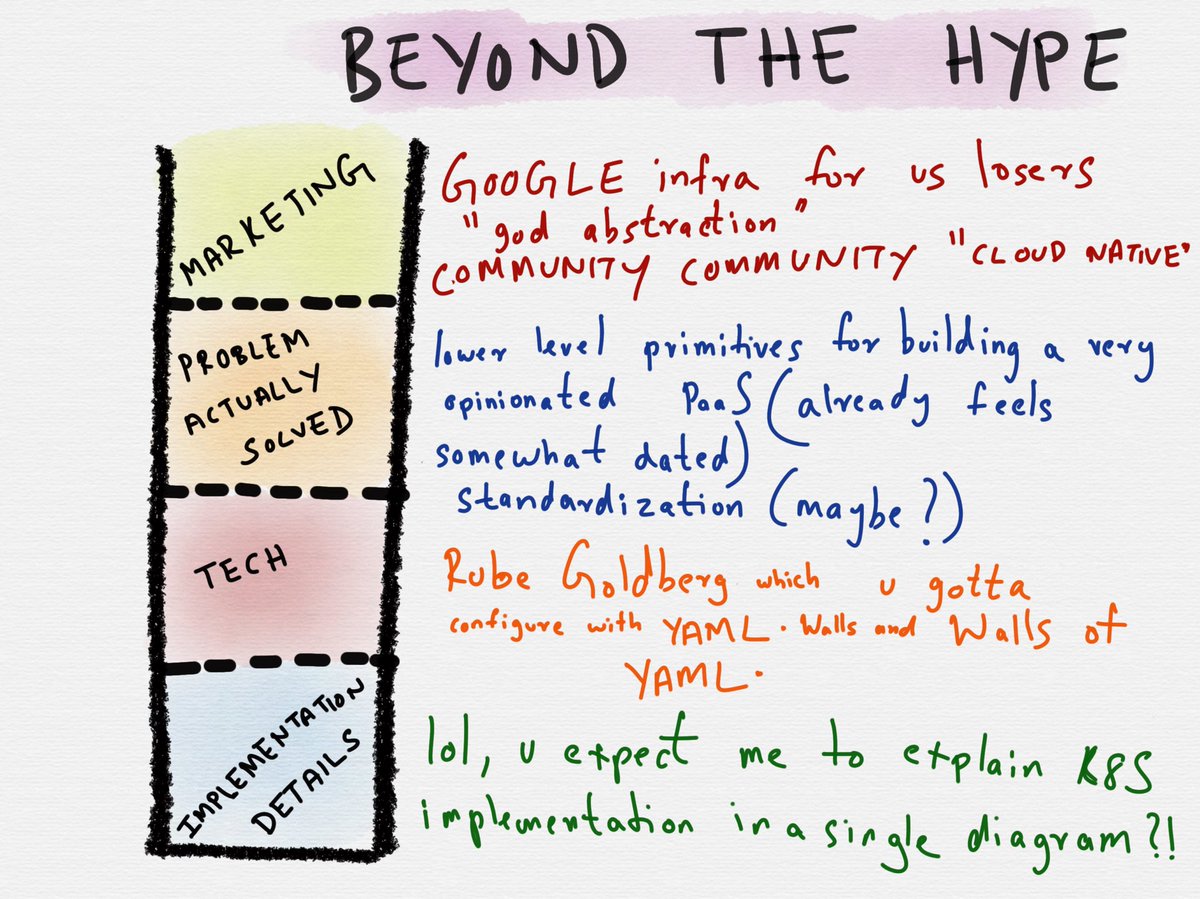 BEYOND THE HYPE
MARKETING
GOOGLE infra for us losers
"god abstraction"
COMMUNITY COMMUNITY "CLOUD NATIVE"
PROBLEM
ACTUALLY
SOLVED
lower level primitives for building a very
opinionated PaaS (already feels
somewhat dated)
standardization (maybe?)
TECH
Rube Goldberg which u gotta
configure with YAML. Walls and Walls of
YAML.
IMPLEMENTATION
DETAILS
lol, u expect me to explain K8S
implementation in a single diagram?!